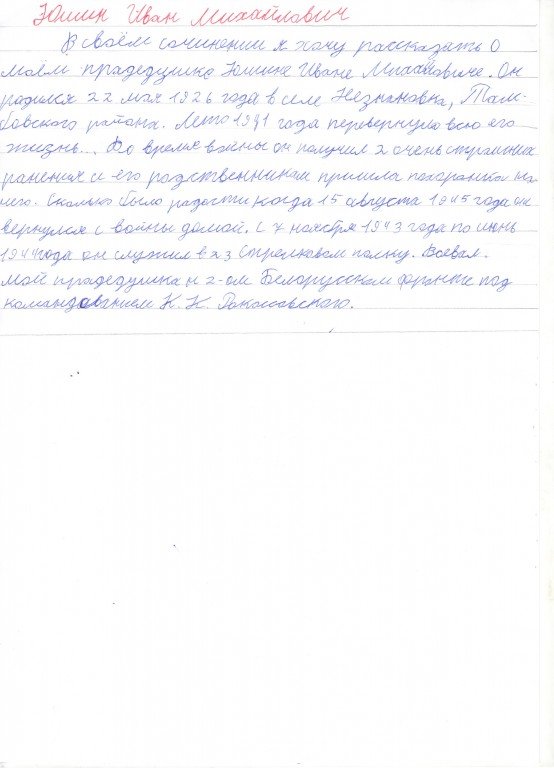 Юшин Иван Михайлович
В своём сочинении я хочу рассказать о
моём прадедушке Юшине Иване Михайловиче. Он
родился 22 мая 1926 года в селе Незнановка, Там-
бовского района. Лето 1941 года перевернуло всю его
жизнь... Во время войны он получил 2 очень страшных
ранения и его родственникам пришла похоронка на
него. Сколько было радости когда 15 августа 1945 года он
вернулся с войны домой. С 7 ноября 1943 года по июнь
1944 года он служил в стрелковом полку. Воевал
мой прадедушка н 2-ом Белорусском фронте под
командованием К. К. Рокоссовского.